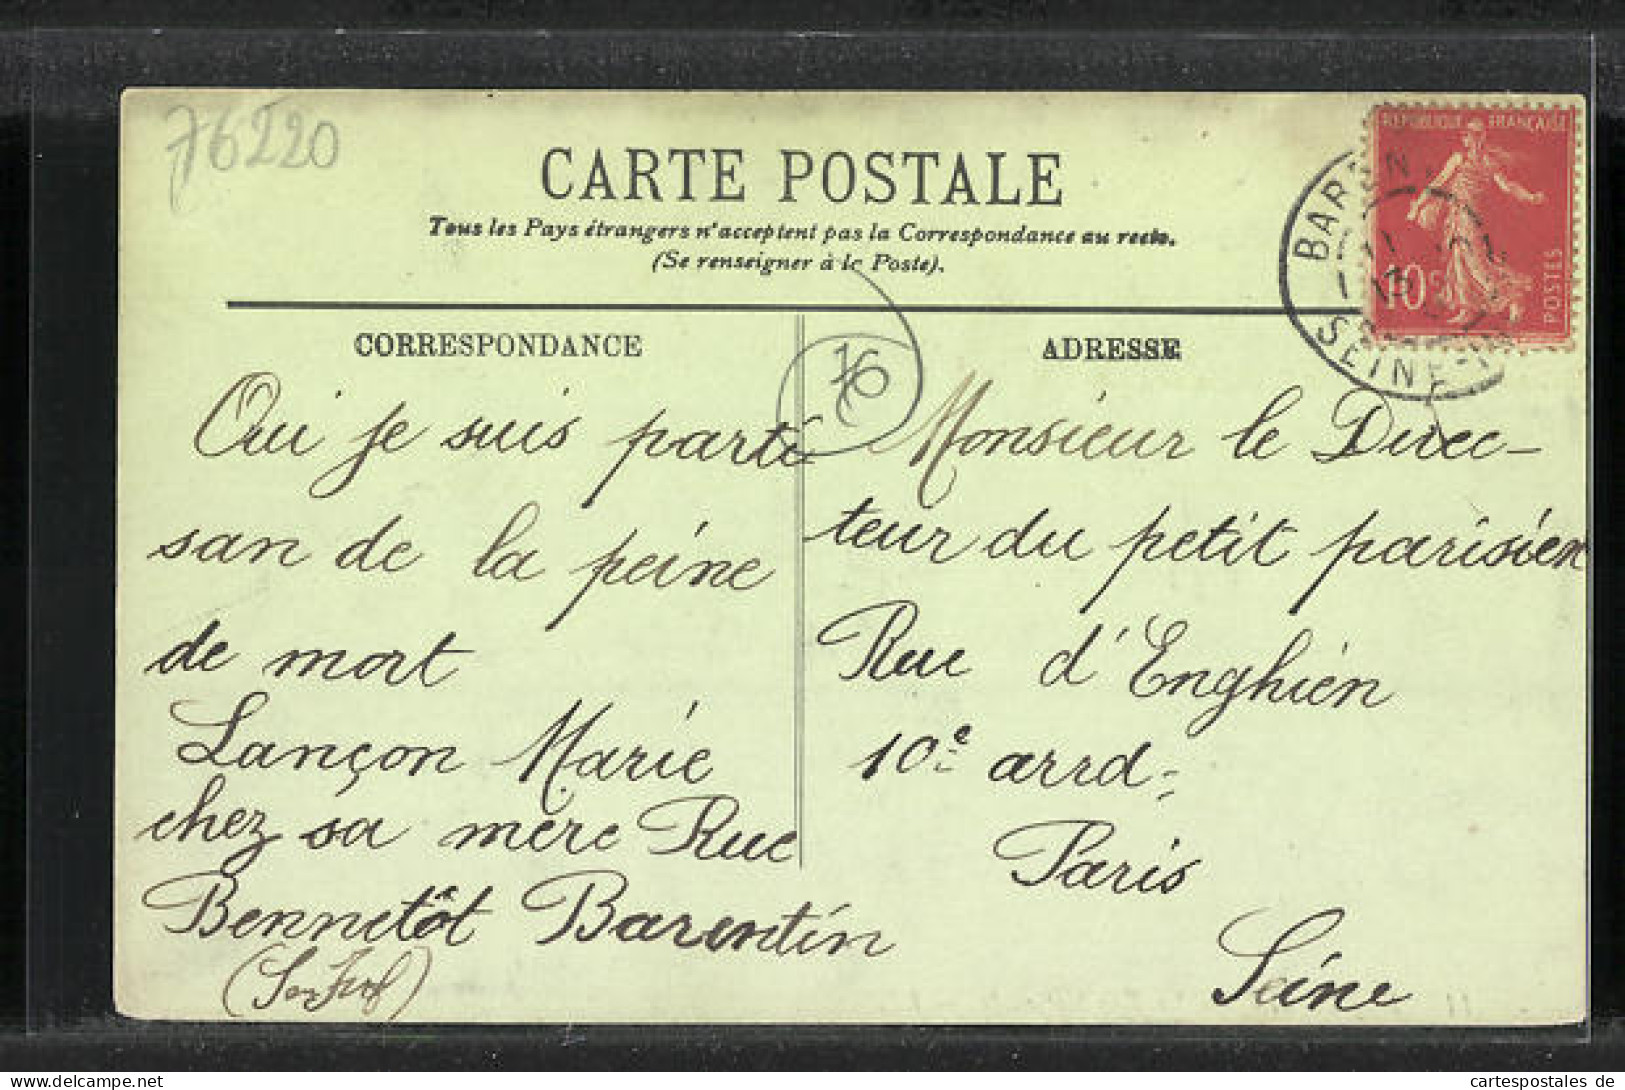 76220
CARTE POSTALE
Tous les Pays étrangers n'acceptent pas la Correspondance au recto.
(Se renseigner à la Poste).
REPUBLIQUE FRANÇAISE
10c
POSTES
BAREN
SEINE-IN
76
CORRESPONDANCE
Oui je suis parti
san de la peine
de mort
Lançon Marie
chez sa mère Rue
Bennetôt Barentin
ADRESSE
Monsieur le Direc-
teur du petit parisien
Rue d'Enghien
10e arrd
Paris
Seine
www.cartespostales.de
cartespostales de